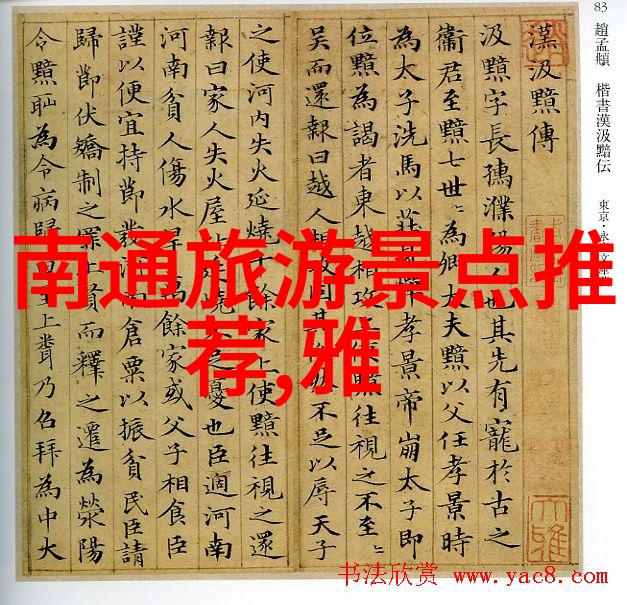 83 趙孟頫 楷書漢汲黯伝 東京・永
漢汲黯傳
汲黯字長孺濮陽人也其先有寵於古之
衞君至黯七世〻為卿大夫黯以父任孝景時
為太子洗馬以莊見憚孝景帝崩太子即
位黯為謁者東越相攻上使黯往視之不至〻
吳而還報曰越人相攻固其俗不足以辱天子
之使河内失火延燒千餘家上使黯往視之還
報曰家人失火屋比延燒不足憂也臣過河南
河南貧人傷水旱萬餘家或父子相食臣
謹以便宜持節發河南倉粟以振貧民臣請
歸節伏矯制之罪上賢而釋之遷為滎陽
令黯恥為令病歸田里上聞乃召拜為中大
南通旅游景点推
荐,雅
书法欣赏 www.yac8.com